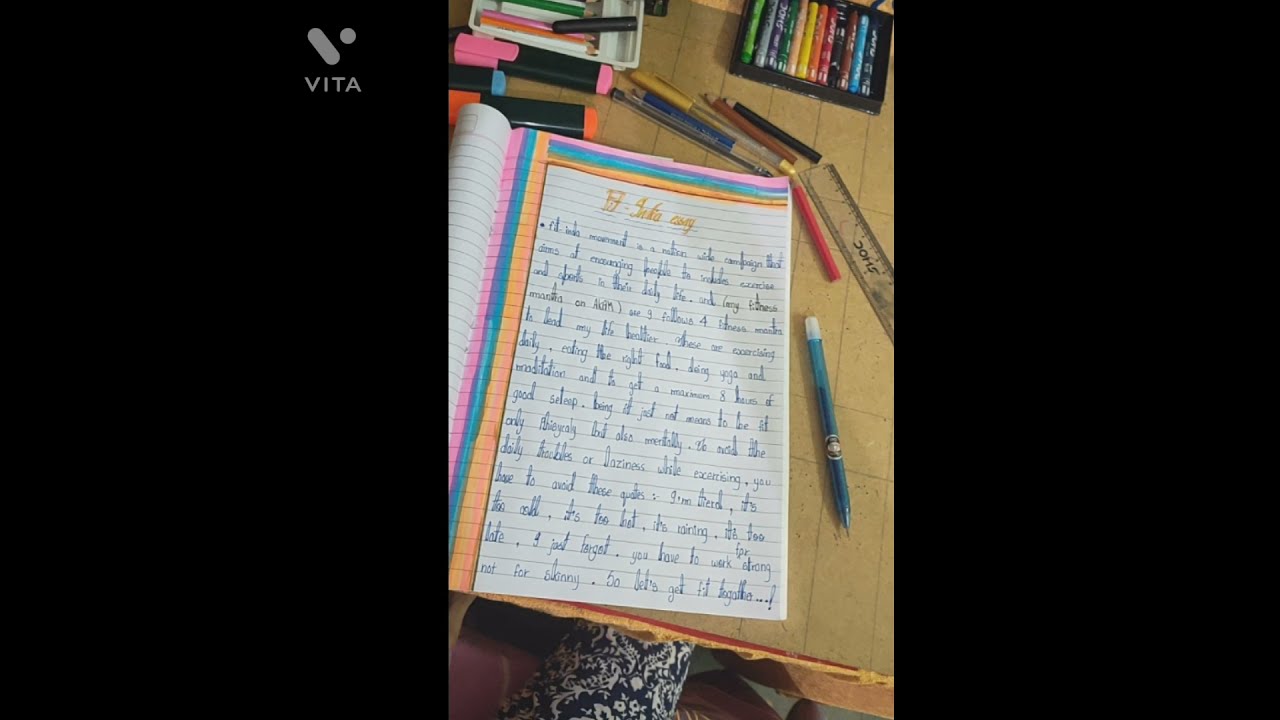 VITA
SHOC
SHOC
Fit-India essay
• Fit india movement is a nation wide campaign that
aims at encouraging people to includes exercise
and sports in their daily life. and (my fitness
mantra on AKAM) are I follows 4 fitness mantra
to lead my life healthier. these are exercising
daily, eating the right food, doing yoga and
maditation and to get a maxmum 8 hours of
good seleep. being fit just not means to be fit
only Phieycaly but also mentally. to avoid the
daily troubles or laziness while excerising, you
have to avoid these quotes :- I'm tierd, it's
too cold, it's too hot, it's raining, it's too
late, I just forgot. you have to work for strong
not for skinny. So let's get fit togather...!